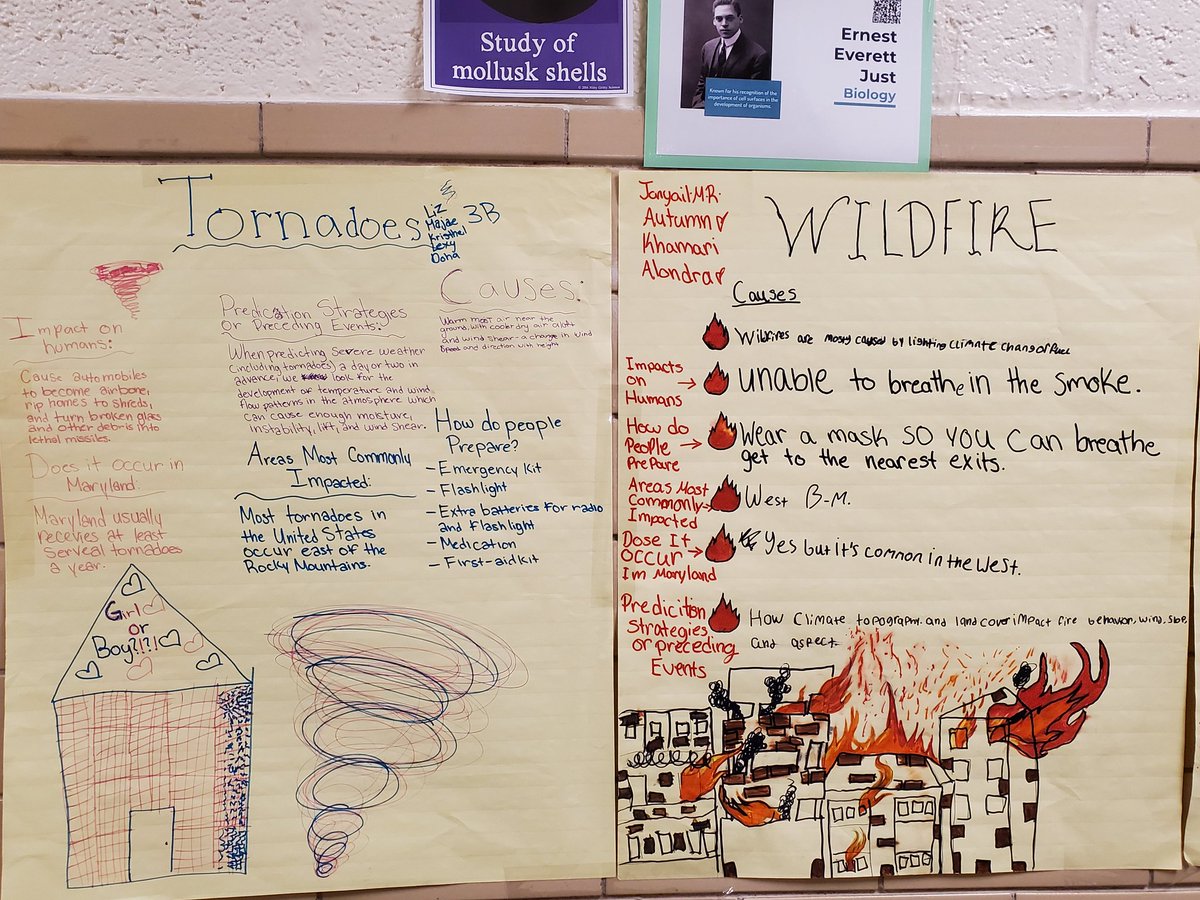 Study of
mollusk shells
Known for his recognition of the
importance of cell surfaces in the
development of organisms.
Ernest
Everett
Just
Biology
Tornadoes
Liz
Majae
Kristhel
Lexy
Doha
3B
Impact on
humans:
Cause automobiles
to become airbone,
rip homes to shreds,
and turn broken glass
and other debris into
lethal missiles.
Does it occur in
Maryland:
Maryland usually
recevies at least
serveal tornadoes
a year.
Predication Strategies
Or Preceding Events:
When predicting severe weather
(including tornadoes) a day or two in
advance, we look for the
development of temperature and wind
flow patterns in the atmosphere which
can cause enough moisture,
instability, lift, and wind shear.
Areas Most Commonly
Impacted:
Most tornadoes in
the United States
occur east of the
Rocky Mountains.
Causes:
Warm moist air near the
ground, with cooler dry air aloft
and wind shear - a change in wind
speed and direction with height
How do people
Prepare?
- Emergency Kit
- Flashlight
- Extra batteries for radio
and flashlight
- Medication
- First-aid kit
Girl
or
Boy?!?!
Janyail.M.R.
Autumn
Khamari
Alondra
WILDFIRE
Causes
Wildfires are mosty caused by lighting climate change of fuel
Impacts
on
Humans
unable to breathe in the smoke.
How do
People
Prepare
Wear a mask so you can breathe
get to the nearest exits.
Areas Most
Commonly
Impacted
West B-M.
Dose It
occur
Im Maryland
Yes but it's common in the West.
Prediction
Strategies
or preceding
Events
How climate topography. and land cover impact fire behavior, wind, slope,
and aspect.